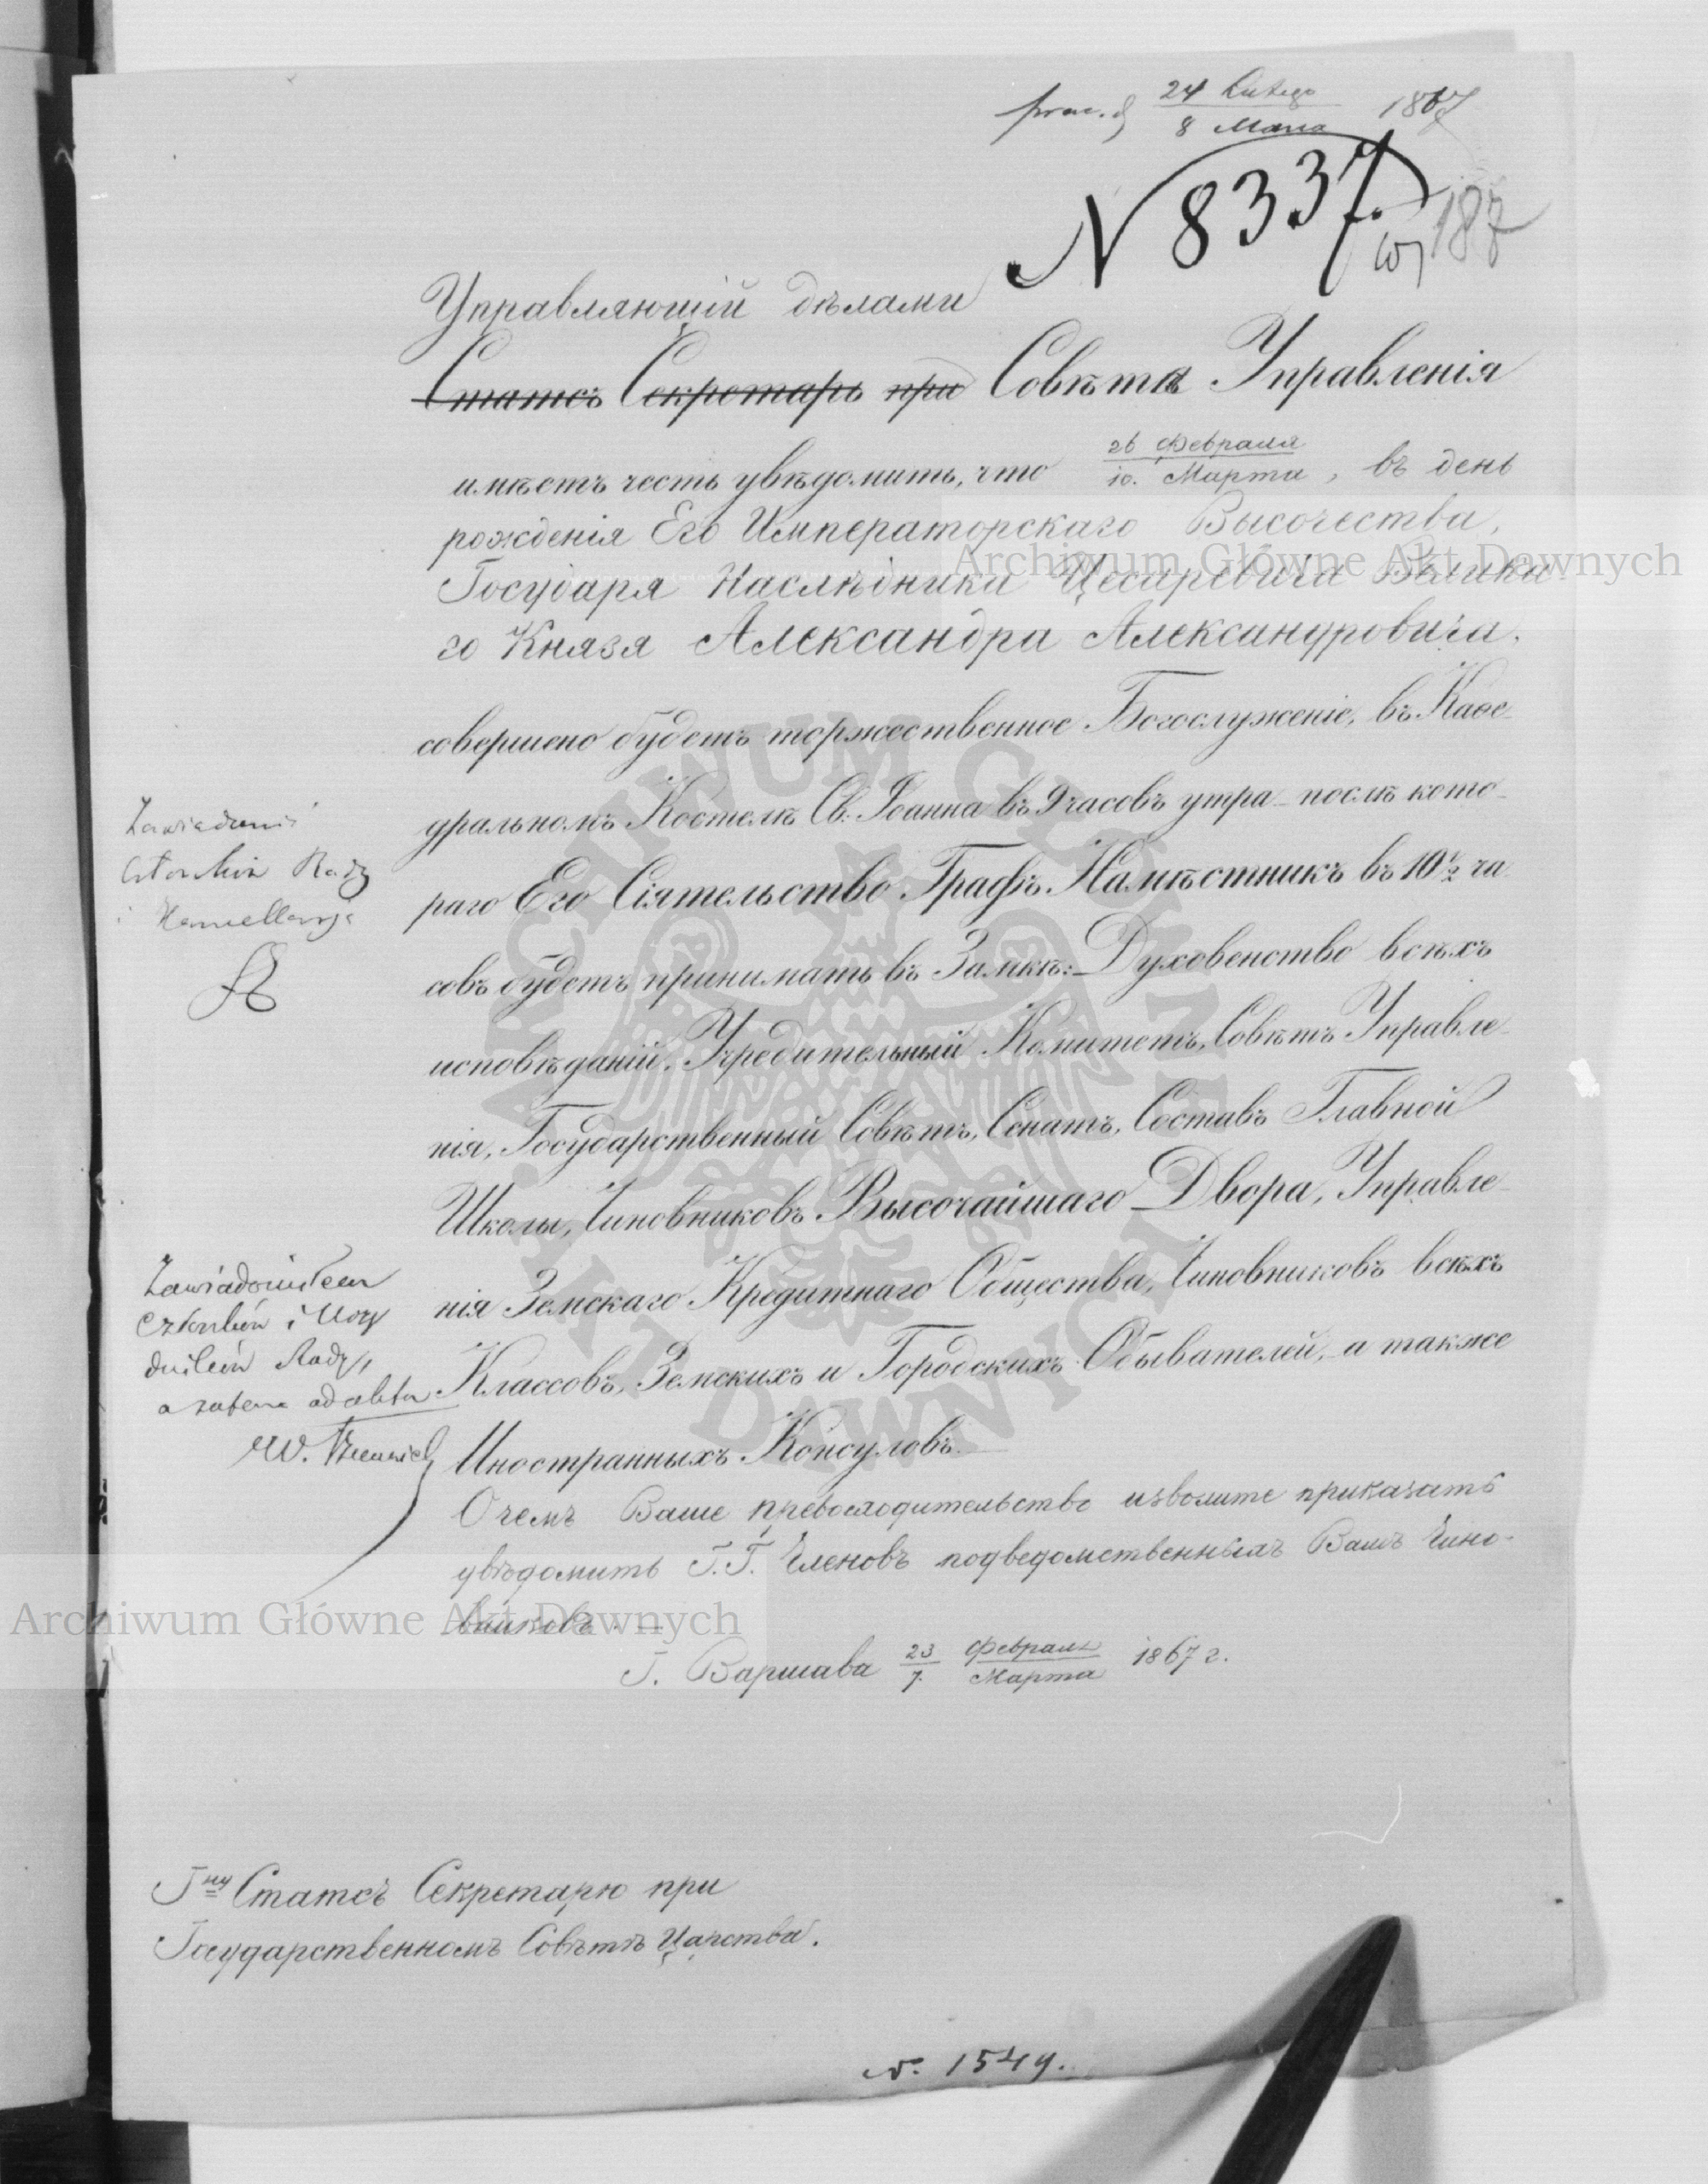 praes. d. 24 Lutego / 8 Marca 1867
N 8337.
187
Управляющій дѣлами
Статсъ Секретарь при Совѣта Управленія
имѣетъ честь увѣдомить, что 26 Февраля / 10. Марта, въ день
рожденія Его Императорскаго Высочества,
Государя Наслѣдника Цесаревича Велика
го Князя Александра Александровича,
совершено будетъ торжественное Богослуженіе, въ Каѳе-
дральномъ Костелѣ Св. Іоанна въ 9 часовъ утра – послѣ кото-
раго Его Сіятельство Графъ Намѣстникъ въ 10 1/2 ча
совъ будетъ принимать въ Замкѣ: Духовенство всѣхъ
исповѣданій, Учредительный Комитетъ, Совѣтъ Управле-
нія, Государственный Совѣтъ, Сенатъ, Составъ Главной
Школы, Чиновниковъ Высочайшаго Двора, Управле-
нія Земскаго Кредитнаго Общества, Чиновниковъ всѣхъ
Классовъ, Земскихъ и Городскихъ Обывателей, – а также
Иностранныхъ Консуловъ. —
О чемъ Ваше превосходительство изволите приказать
увѣдомить Г.Г. Членовъ подведомственныхъ Вамъ Чино-
вниковъ. —
Г. Варшава 23 / 7. Февраля / Марта 1867 г.
Zawiadomić
Członków Rady
i Kancellaryę
Zawiadomiłem
Członków i Urzę
dników Rady,
a zatem ad acta
Гну Статсъ Секретарю при
Государственномъ Совѣтѣ Царства.
N. 1549.
Archiwum Główne Akt Dawnych
Archiwum Główne Akt Dawnych
ARCHIWUM GŁÓWNE AKT DAWNYCH